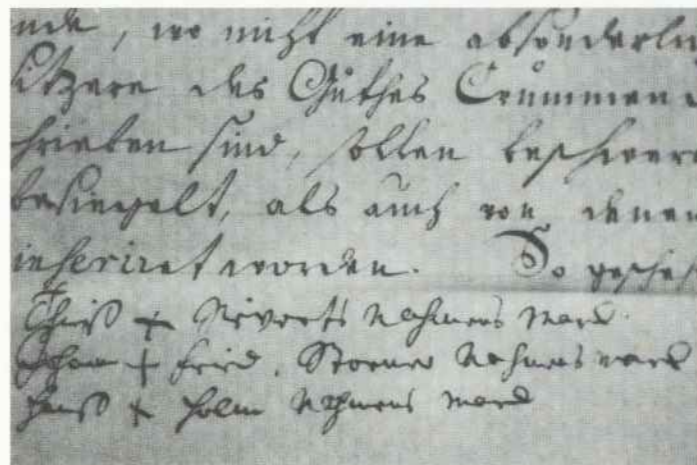 nde, wo nicht eine absonderli
sitzere des Guthes Crummen
hrieben sind, sollen beschwer
besiegelt, als auch von denen
inseriret worden. So gesche
+ Siverts Nahmens Marck
+ Fried. Nahmens marck
Hanß + Holm Nahmens Marck